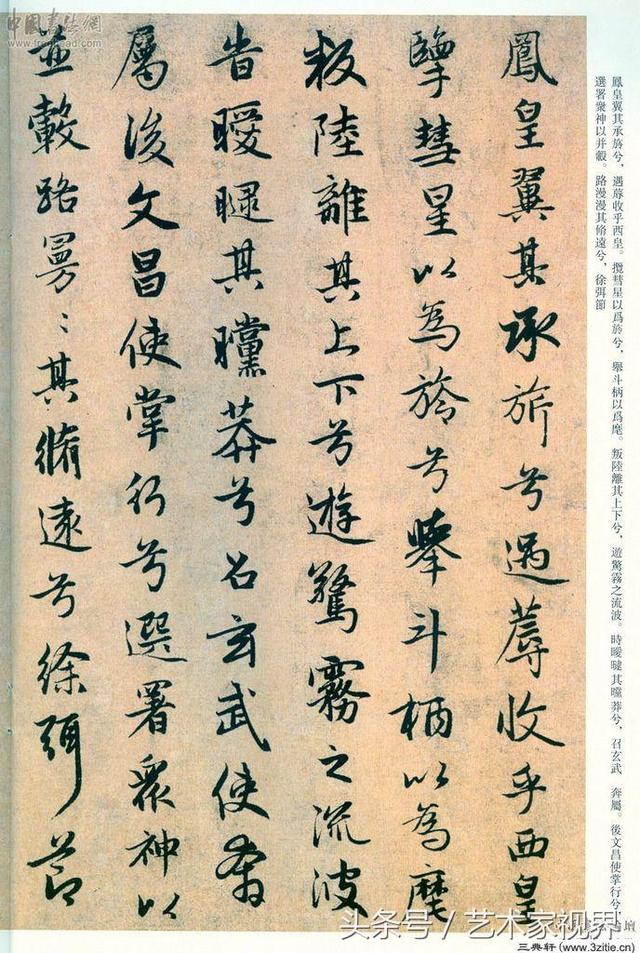 中国书法网
鳳皇翼其承旂兮，遇蓐收乎西皇。攬彗星以爲旍兮，舉斗柄以爲麾。叛陸離其上下兮，遊驚霧之流波。時曖曃其曭莽兮，召玄武 奔屬。後文昌使掌行兮，
選署衆神以并轂。路漫漫其脩遠兮，徐弭節
鳳皇翼其承旂兮遇蓐收乎西皇
擥彗星以為旍兮舉斗柄以為麾
叛陸離其上下兮遊驚霧之流波
旹曖曃其曭莽兮召玄武使奔
屬後文昌使掌行兮選署衆神以
並轂路曼〻其脩遠兮徐弭節
头条号 / 艺术家视界
三典轩(www.3zitie.cn)